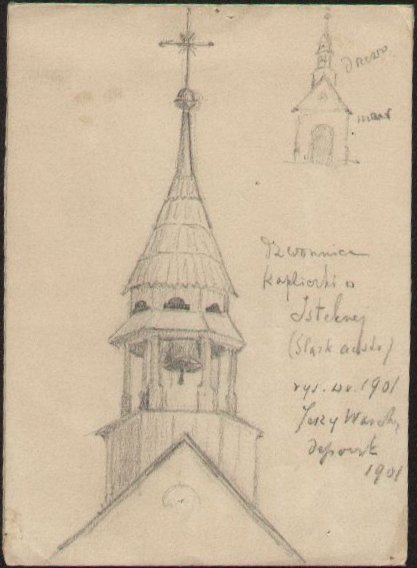 Drzewo
mur
Dzwonnica
Kapliczki w
Istebnej
(Śląsk austr.)
rys. w r. 1901
Jerzy Warch
1901